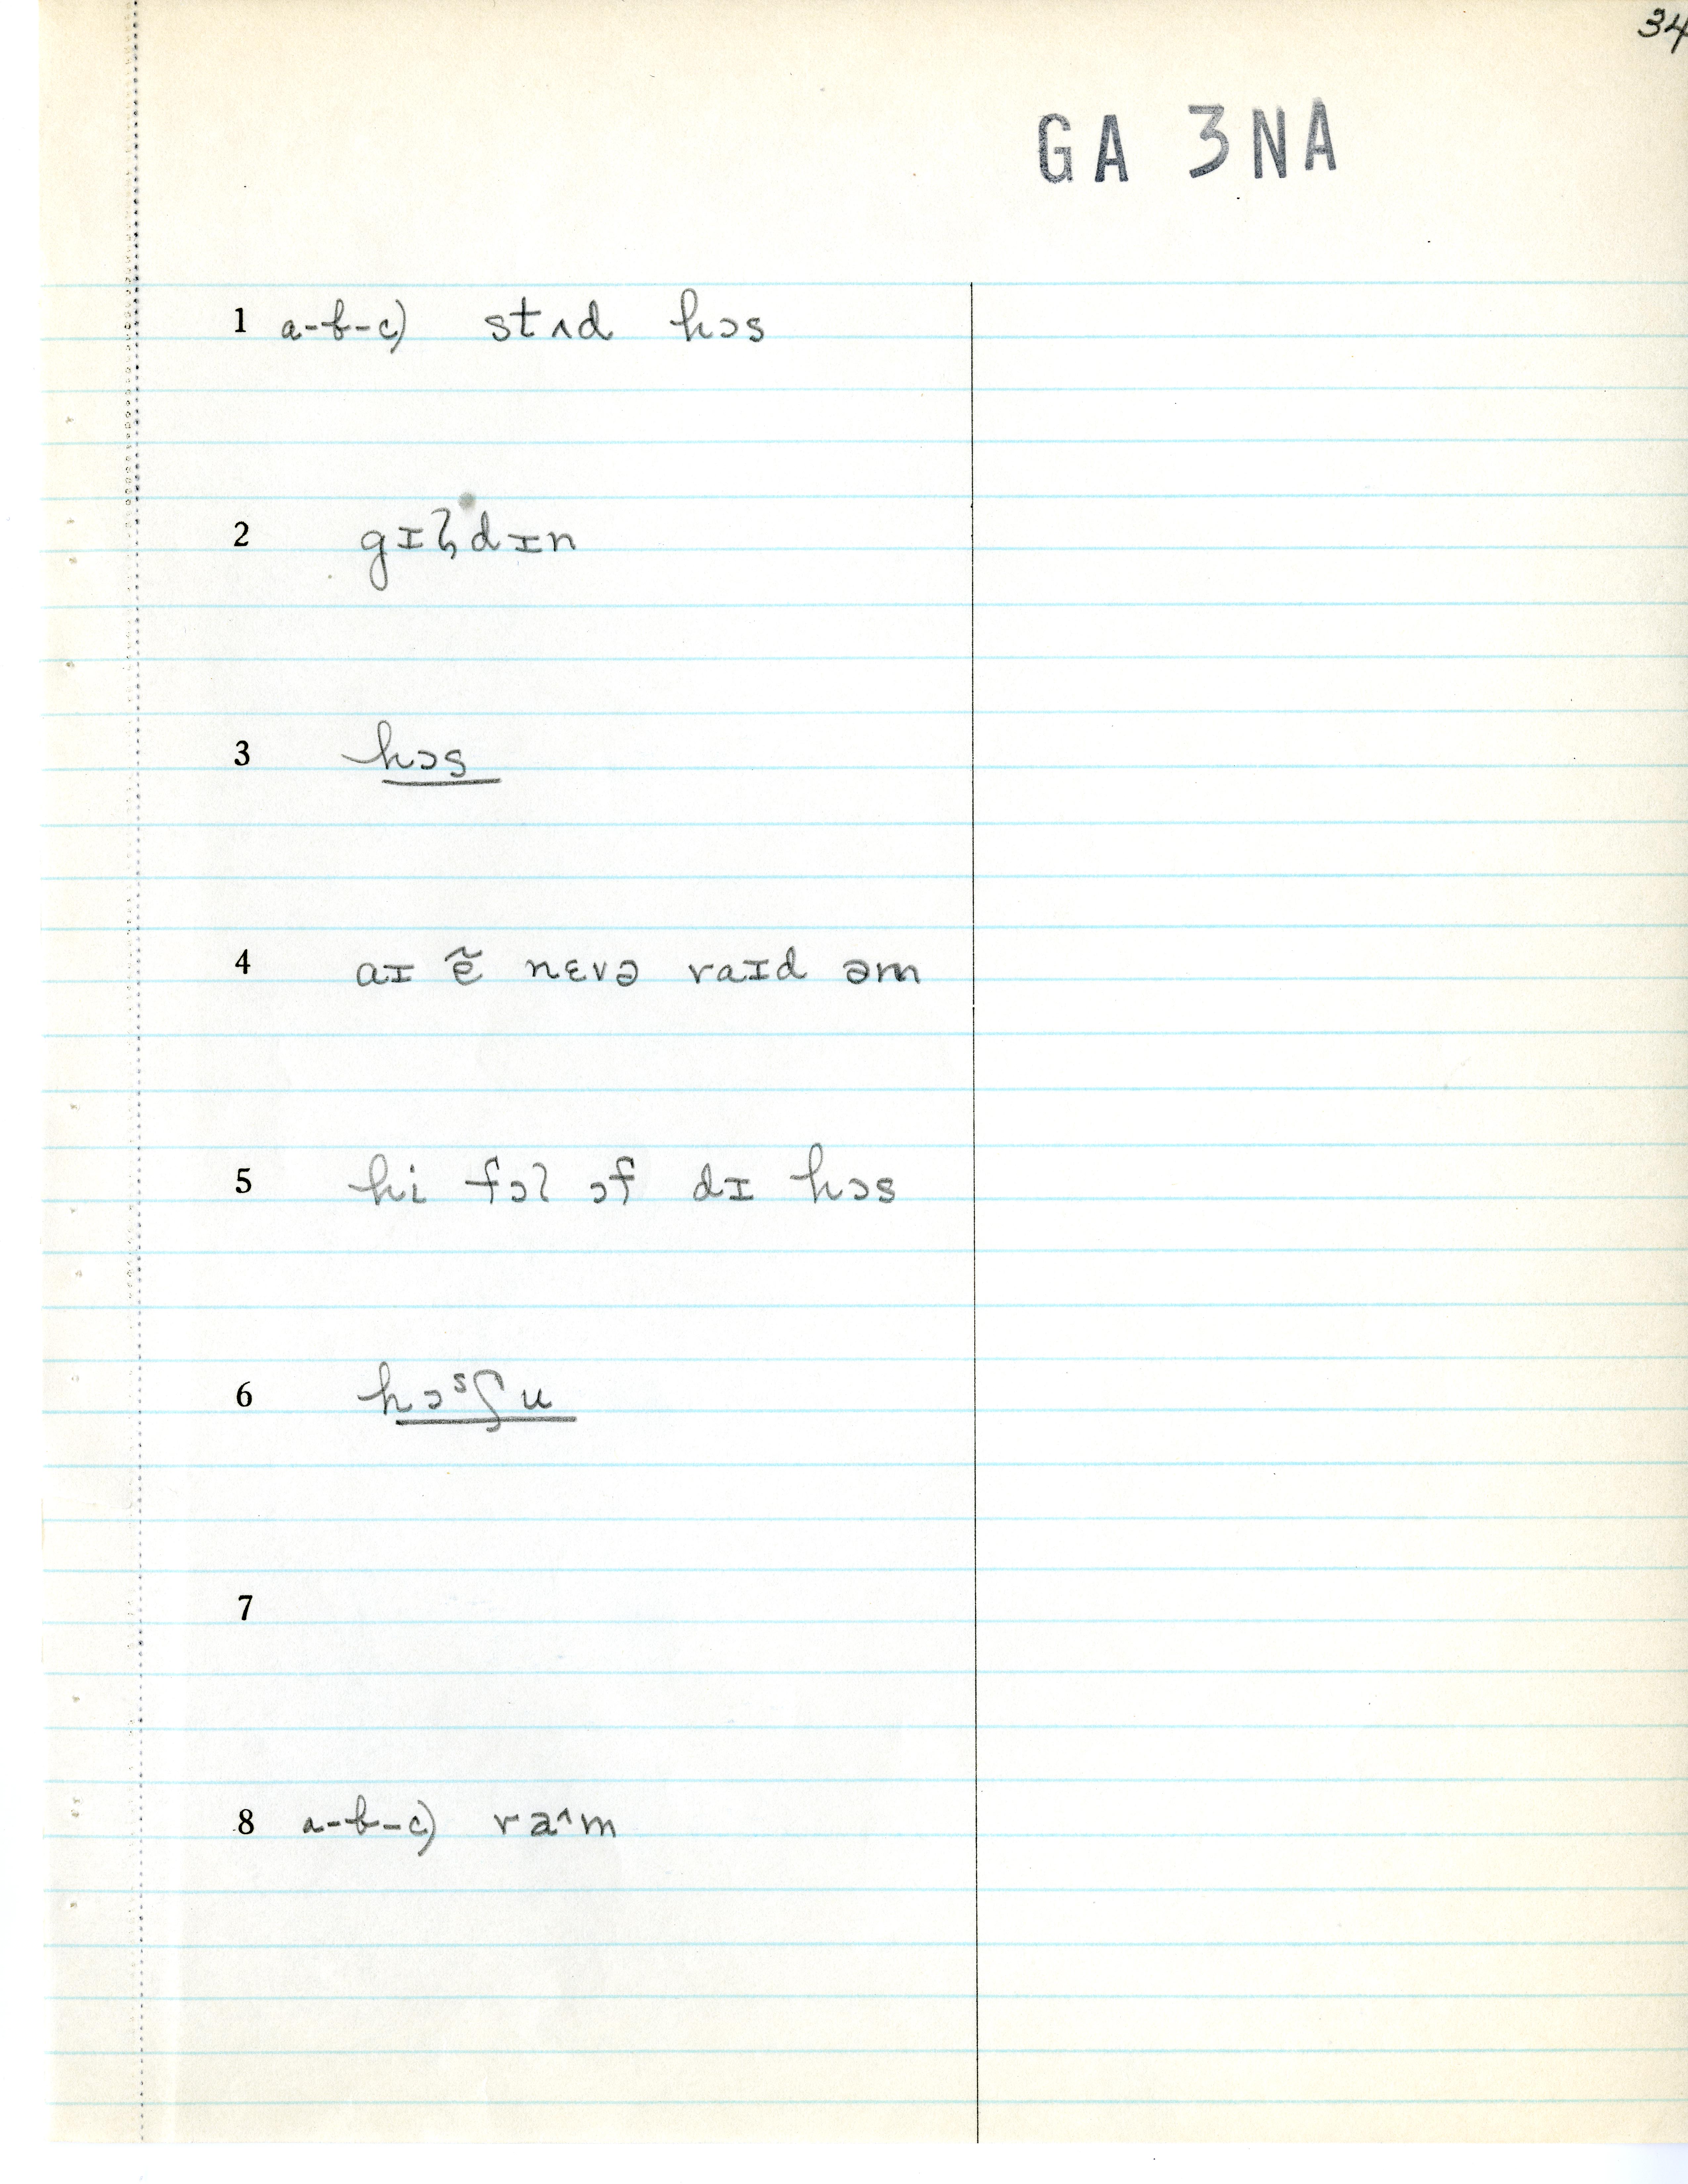 34
GA 3NA
1 a-b-c) stʌd hɔs
2 gɪl̡dɪn
3 hɔs
4 aɪ ẽ nɛvə raɪd əm
5 hi fɔl ɔf dɪ hɔs
6 hɔˢʃu
7
8 a-b-c) ra˄m